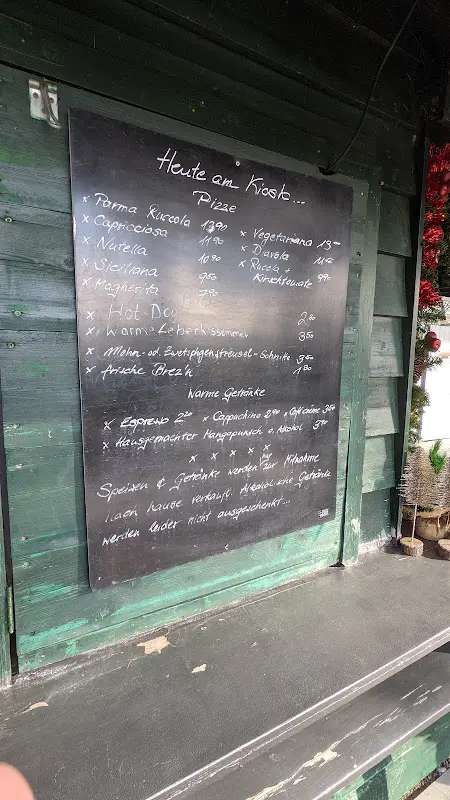 Heute am Kiosk...
Pizze
x Parma Ruccola 13,90
x Capricciosa 11,90
x Nutella 10,90
x Siciliana 9,50
x Magherita 7,90
x Vegetariana 13,00
x Diavola 11,50
x Rucola + Kirschtomate 9,90
x Hot-Dog 2,80
x Warme Leberkässemmel 3,50
x Mohn- od. Zwetschgenstreusel-Schnitte 3,50
x frische Brez'n 1,80
Warme Getränke
x Espresso 2,20 x Cappuchino 2,90 x Café crème 3,50
x Hausgemachter Mangopunsch o. Alkohol 3,90
x x x x x
Speisen & Getränke werden nur zur Mitnahme
nach hause verkauft. Alkoholische Getränke
werden leider nicht ausgeschenkt...